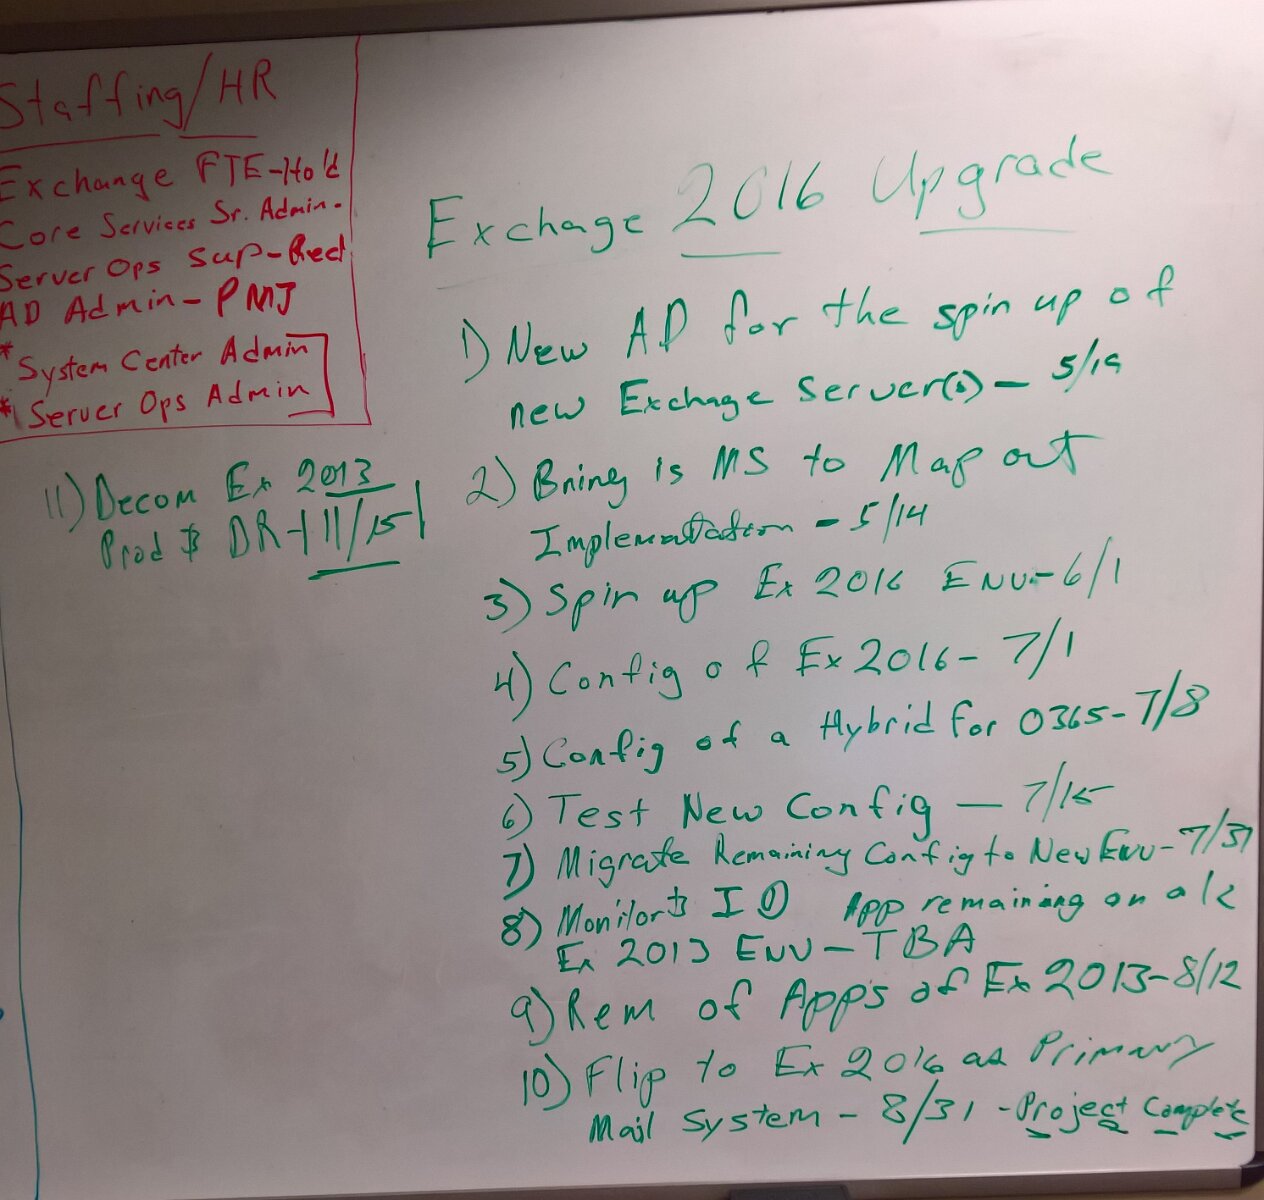 Staffing/HR
Exchange FTE-Hold
Core Services Sr. Admin.
Server Ops Sup-Rect
AD Admin- PMJ
* System Center Admin
* Server Ops Admin
Exchage 2016 Upgrade
1) New AD for the spin up of
new Exchage Server(s) - 5/19
2) Bring is MS to Map out
Implementation - 5/14
3) Spin up Ex 2016 ENV- 6/1
4) Config of Ex 2016- 7/1
5) Config of a Hybrid for O365- 7/8
6) Test New Config - 7/15
7) Migrate Remaining Config to New Env- 7/31
8) Monitor & ID App remaining on
Ex 2013 ENV - TBA
9) Rem of App's of Ex 2013- 8/12
10) Flip to Ex 2016 as Primary
Mail System - 8/31 - Project Complete
11) Decom Ex 2013
Prod & DR - 11/15